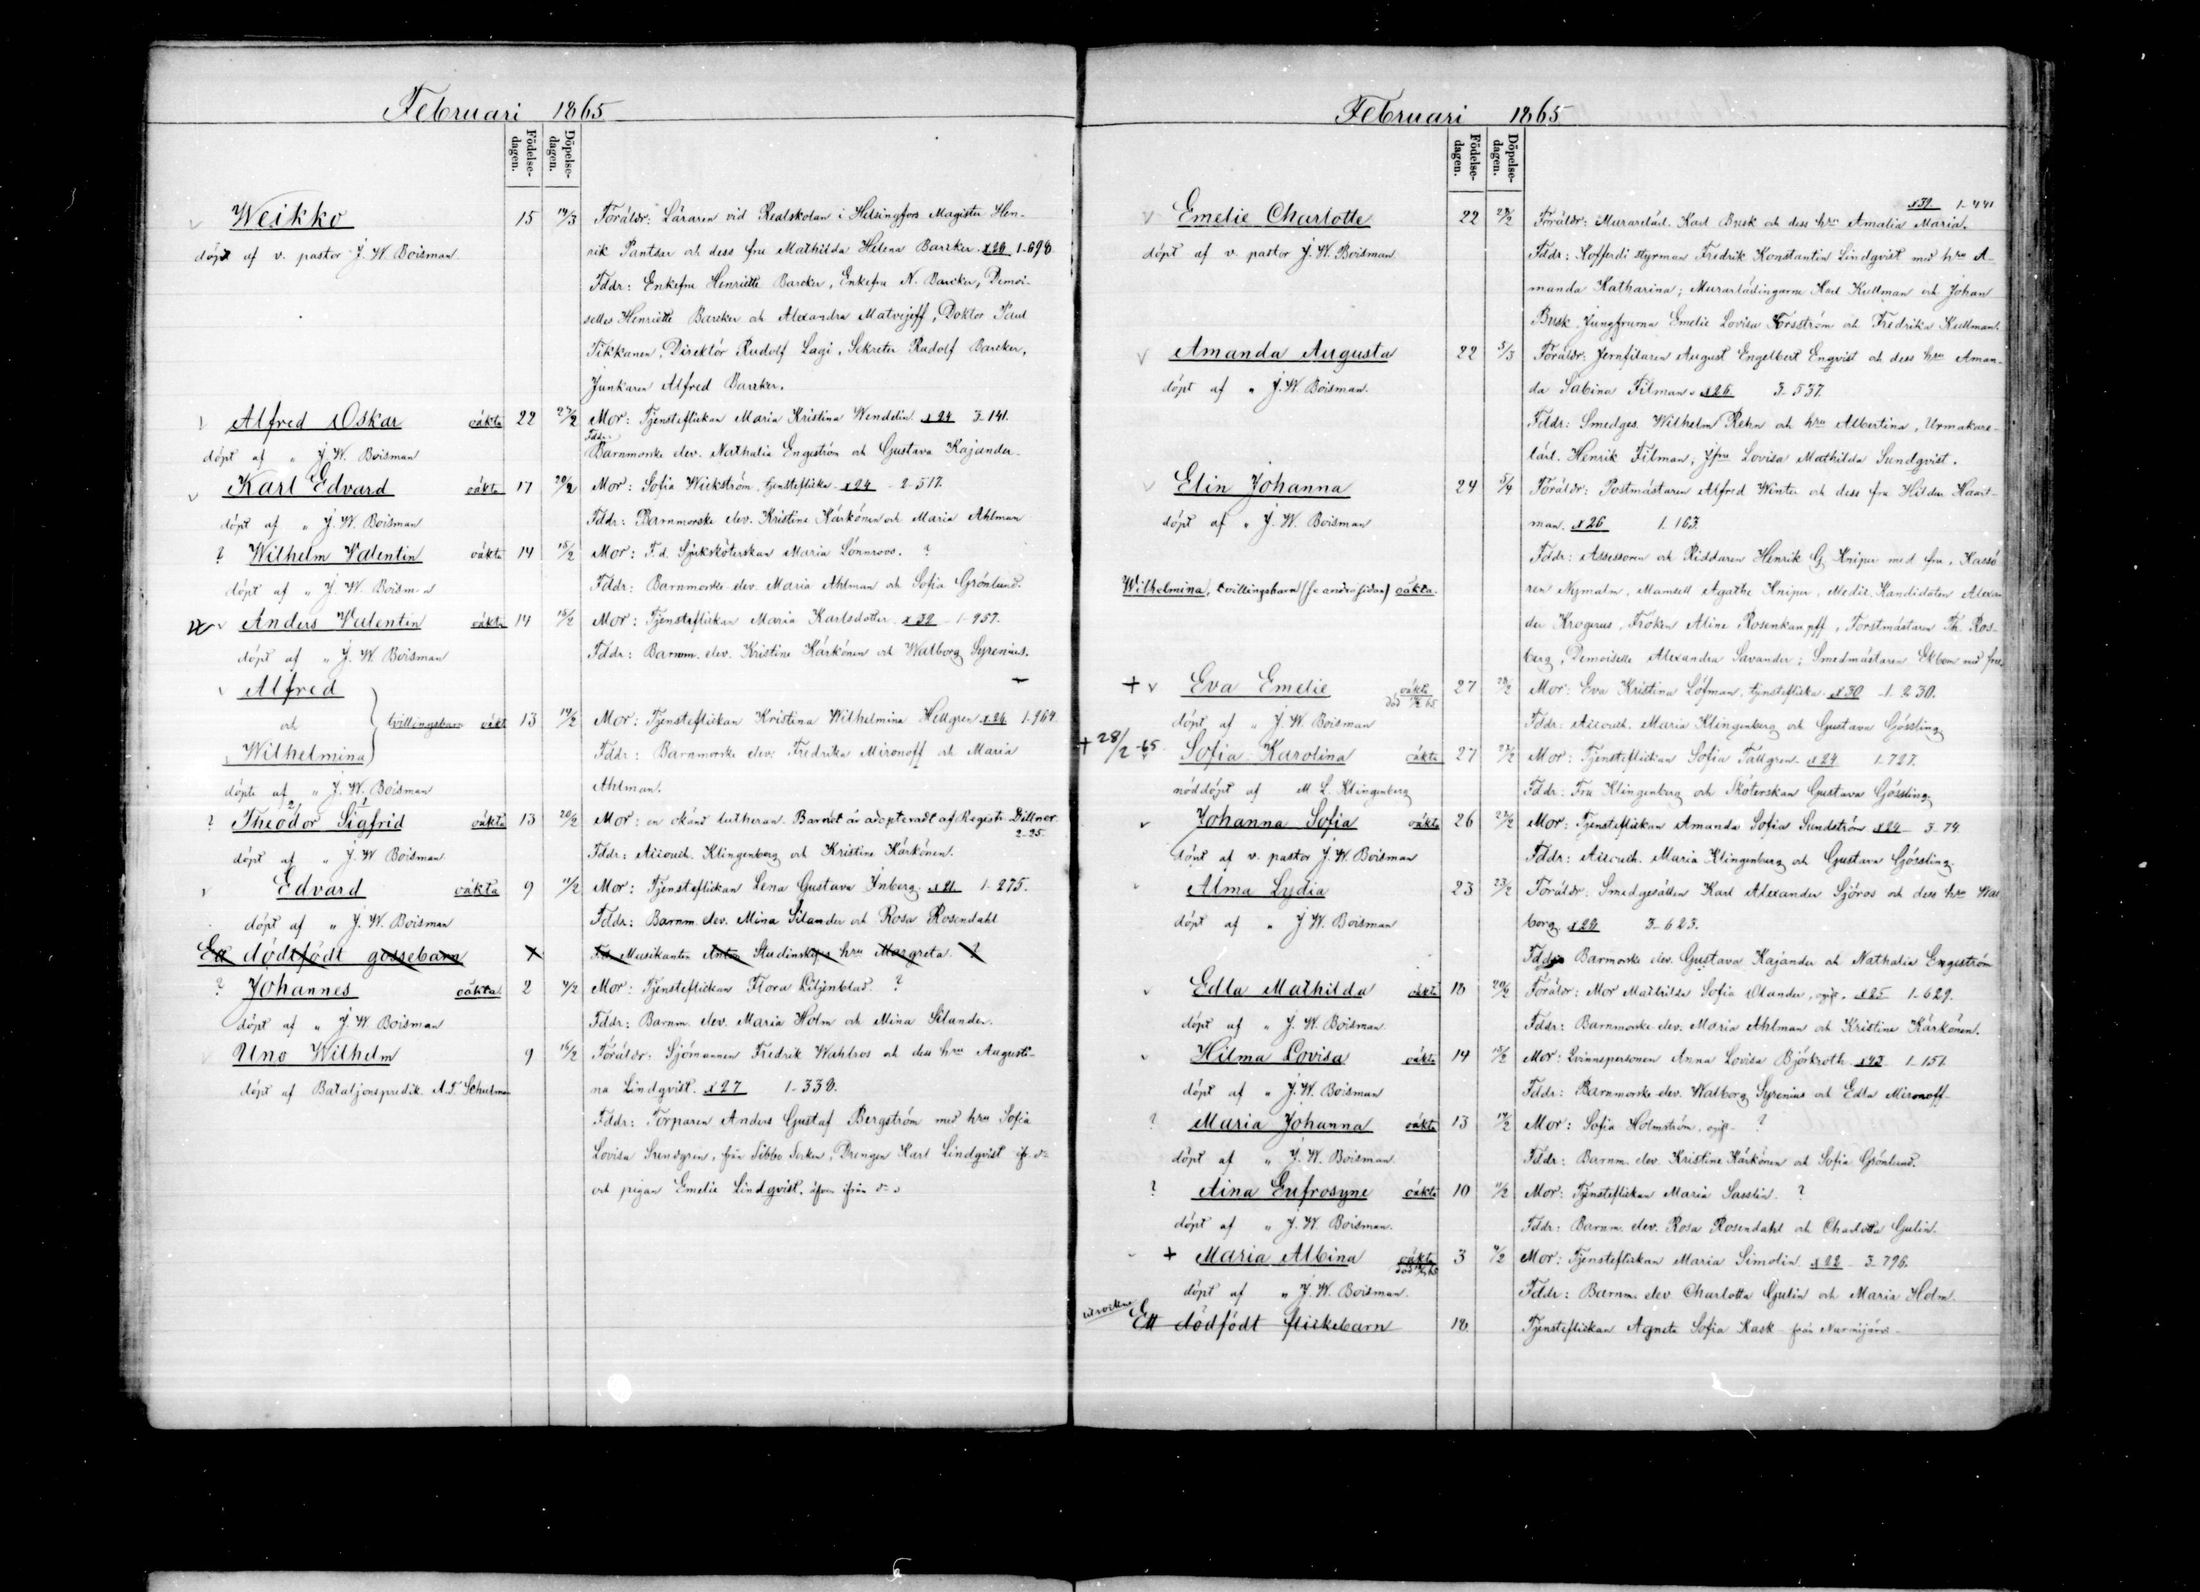 Februari 1865
Födelse-dagen.
Döpelse-dagen.
Weikko 15 14/3 Föräldr: Läraren vid Realskolan i Helsingfors Magister Hen-
döpt af v. pastor J. W. Boisman. rik Pantser och dess fru Mathilda Helena Barcker. x26 1-698
Fddr: Enkefru Henriette Barcker, Enkefru N. Barcker, Demoi-
selles Henriette Barcker och Alexandra Matvejeff, Doktor Paul
Tikkanen, Direktör Rudolf Lagi, Sekreter Rudolf Barcker,
Junkaren Alfred Barcker.
Alfred Oskar oäkta 22 27/2 Mor: Tjensteflickan Maria Kristina Wendelin. x24 3-141.
Fddr:
döpt af " J. W. Boisman Barnmorske elev. Nathalia Engeström och Gustava Kajander.
Karl Edvard oäkta 17 20/2 Mor: Sofia Wickström, tjensteflicka x24 2-517.
döpt af " J. W. Boisman Fddr: Barnmorske elev. Kristine Kärkönen och Maria Ahlman
? Wilhelm Valentin oäkta 14 15/2 Mor: F.d. Sjuksköterskan Maria Lönnroos. ?
döpt af " J. W. Boisman Fddr: Barnmorske elev. Maria Ahlman och Sofia Grönlund.
Anders Valentin oäkta 14 15/2 Mor: Tjensteflickan Maria Karlsdotter x39 1-957.
döpt af " J. W. Boisman Fddr: Barnm. elev. Kristine Kärkönen och Walborg Syrenius.
Alfred
och tvillingsbarn oäkt 13 14/2 Mor: Tjensteflickan Kristina Wilhelmina Hellgren x26 1-964.
Wilhelmina Fddr: Barnmorske elev. Fredrika Mironoff och Maria
döpte af " J. W. Boisman Ahlman.
? Theodor Sigfrid oäkta 13 20/2 Mor: en okänd lutheran. Barnet är adopteradt af Registr. Dillner
2-25.
döpt af " J. W. Boisman Fddr: Accouch. Klingenberg och Kristine Kärkönen.
Edvard oäkta 9 11/2 Mor: Tjensteflickan Lena Gustava Inberg. x21 1-275.
döpt af " J. W. Boisman Fddr: Barnm. elev. Mina Silander och Rosa Rosendahl
Ett dödtfödt gossebarn Musikanten Anton hru Margreta ?
? Johannes oäkta 2 4/2 Mor: Tjensteflickan Flora Liljenblad. ?
döpt af " J. W. Boisman Fddr: Barnm. elev. Maria Holm och Mina Silander.
Uno Wilhelm 9 16/2 Föräldr: Sjömannen Fredrik Wahlros och dess hru Augusti-
döpt af Bataljonspredik. A. F. Schulman na Lindqvist. x27 1-338.
Fddr: Torparen Anders Gustaf Bergström med hru Sofia
Lovisa Sundgren, från Sibbo socken, Drengen Karl Lindqvist
och pigan Emelie Lindqvist, äfven ifrån d:o
Februari 1865
Födelse-dagen.
Döpelse-dagen.
x39 1-441
Emelie Charlotte 22 28/2 Föräldr: Murarelärl. Karl Busk och dess hru Amalia Maria.
döpt af v. pastor J. W. Boisman. Fddr: Kofferdi styrman Fredrik Konstantin Lindqvist med hru A-
manda Katharina; Murarlärlingarne Karl Kullman och Johan
Busk. Jungfrurna Emelie Lovisa Forsström och Fredrika Kullman.
Amanda Augusta 22 5/3 Föräldr: Jernfilaren August Engelbert Engvist och dess hru Aman-
döpt af " J. W. Boisman. da Sabina Filman. x26 3-537.
Fddr: Smedges. Wilhelm Rehn och hru Albertina, Urmakare-
lärl. Henrik Filman, Jfru Lovisa Mathilda Sundqvist.
Elin Johanna 24 5/4 Föräldr: Postmästaren Alfred Winter och dess fru Hilda Haart-
döpt af " J. W. Boisman man. x26 1-163.
Fddr: Assessoren och Riddaren Henrik G. Kniper med fru, Kassö-
Wilhelmina, tvillingsbarn (se andra sidan) oäkta. ren Nymalm, Mamsell Agathe Kniper, Medic. Kandidaten Alexan-
der Krogerus, Fröken Aline Rosenkampff, Forstmästaren Th. Ros-
berg, Demoiselle Alexandra Savander; Smedmästaren Ekbom med fru.
+ Eva Emelie oäkta 27 28/2 Mor: Eva Kristina Löfman, tjensteflicka x30 1-230.
döpt af " J. W. Boisman Fddr: Accouch. Maria Klingenberg och Gustava Gössling.
+28/2-65 Sofia Karolina oäkta 27 27/2 Mor: Tjensteflickan Sofia Tallgren. x24 1-727.
nöddöpt af M. L. Klingenberg Fddr: Fru Klingenberg och Sköterskan Gustava Gössling.
Johanna Sofia oäkta 26 27/2 Mor: Tjensteflickan Amanda Sofia Sundström x24 3-74.
döpt af v. pastor J. W. Boisman Fddr: Accouch. Maria Klingenberg och Gustava Gössling.
Alma Lydia 23 23/2 Föräldr: Smedgesällen Karl Alexander Sjöros och dess hru Wal-
döpt af " J. W. Boisman borg. x26 3-623.
Fddr: Barmorske elev. Gustava Kajander och Nathalia Engeström
Edla Mathilda oäkta 18 20/2 Föräldr: Mor Mathilda Sofia Olander, ogift, x25 1-629.
döpt af " J. W. Boisman. Fddr: Barnmorske elev. Maria Ahlman och Kristine Kärkönen.
Hilma Lovisa oäkta 14 15/2 Mor: Qvinnspersonen Anna Lovisa Björkroth. x43 1-151.
döpt af " J. W. Boisman Fddr: Barnmorske elev. Walborg Syrenius och Edla Mironoff.
? Maria Johanna oäkta 13 14/2 Mor: Sofia Holmström, ogift. ?
döpt af " J. W. Boisman. Fddr: Barnm. elev. Kristine Kärkönen och Sofia Grönlund.
? Aina Eufrosyne oäkta 10 11/2 Mor: Tjensteflickan Maria Sasslin. ?
döpt af " J. W. Boisman. Fddr: Barnm. elev. Rosa Rosendahl och Charlotta Gulin.
+ Maria Albina oäkta 3 4/2 Mor: Tjensteflickan Maria Simolin x22 3-796.
döpt af " J. W. Boisman. Fddr: Barnm. elev. Charlotta Gulin och Maria Holm.
Ett dödfödt flickebarn 18. Tjensteflickan Agneta Sofia Kask från Nurmijärvi